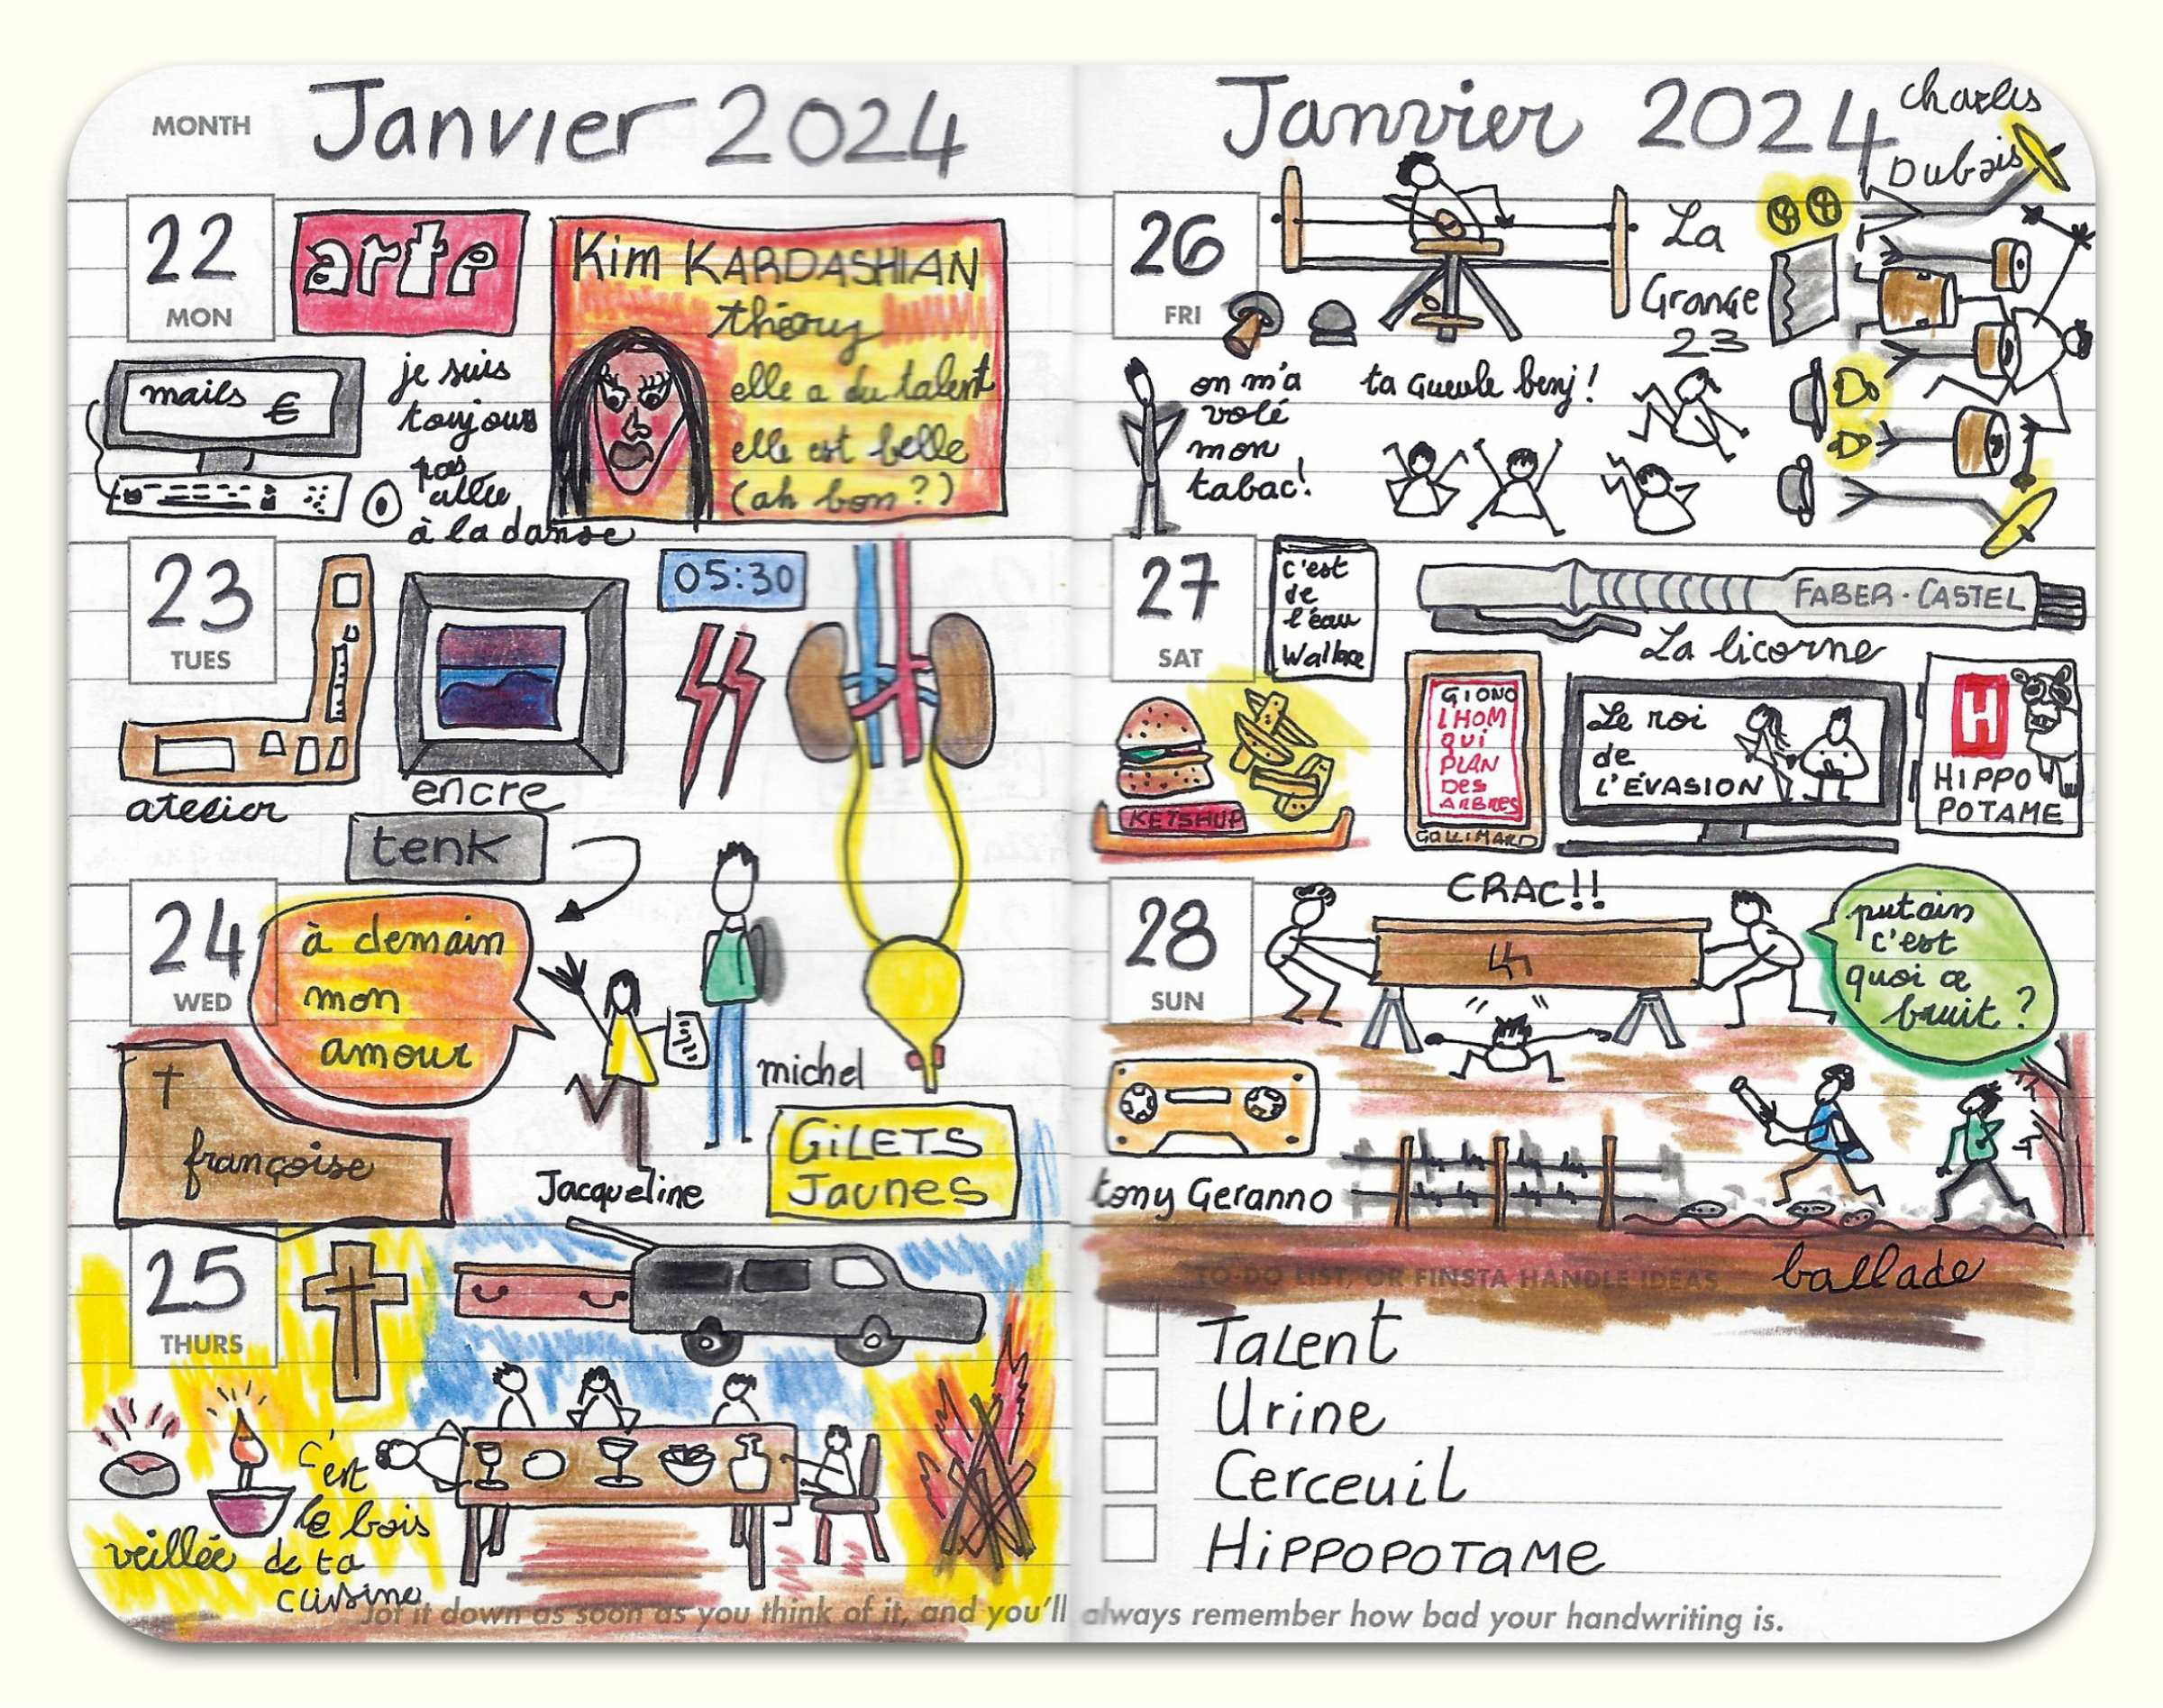 MONTH
Janvier 2024
22
MON
arte
Kim KARDASHIAN
théory
elle a du talent
elle est belle
(ah bon?)
mails €
je suis
toujours
pas
allée
à la danse
23
TUES
atelier
encre
05:30
tenk
24
WED
à demain
mon
amour
françoise
michel
Jacqueline
GILETS
JAUNES
25
THURS
veillée
c'est
le bois
de ta
cuisine
Jot it down as soon as you think of it, and you'll always remember how bad your handwriting is.
Janvier 2024
Charles
Dubois
26
FRI
La
Grange
23
on m'a
volé
mon
tabac!
ta Gueule benj!
27
SAT
c'est
de
l'eau
Wallace
FABER-CASTEL
La licorne
KETSHUP
GIONO
L'HOM
QUI
PLAN
DES
ARBRES
GALLIMARD
Le roi
de
L'ÉVASION
H
HIPPO
POTAME
28
SUN
CRAC!!
putain
c'est
quoi ce
bruit?
tony Geranno
ballade
TO-DO LIST, OR FINSTA HANDLE IDEAS
Talent
Urine
Cerceuil
HiPPOPOTaMe